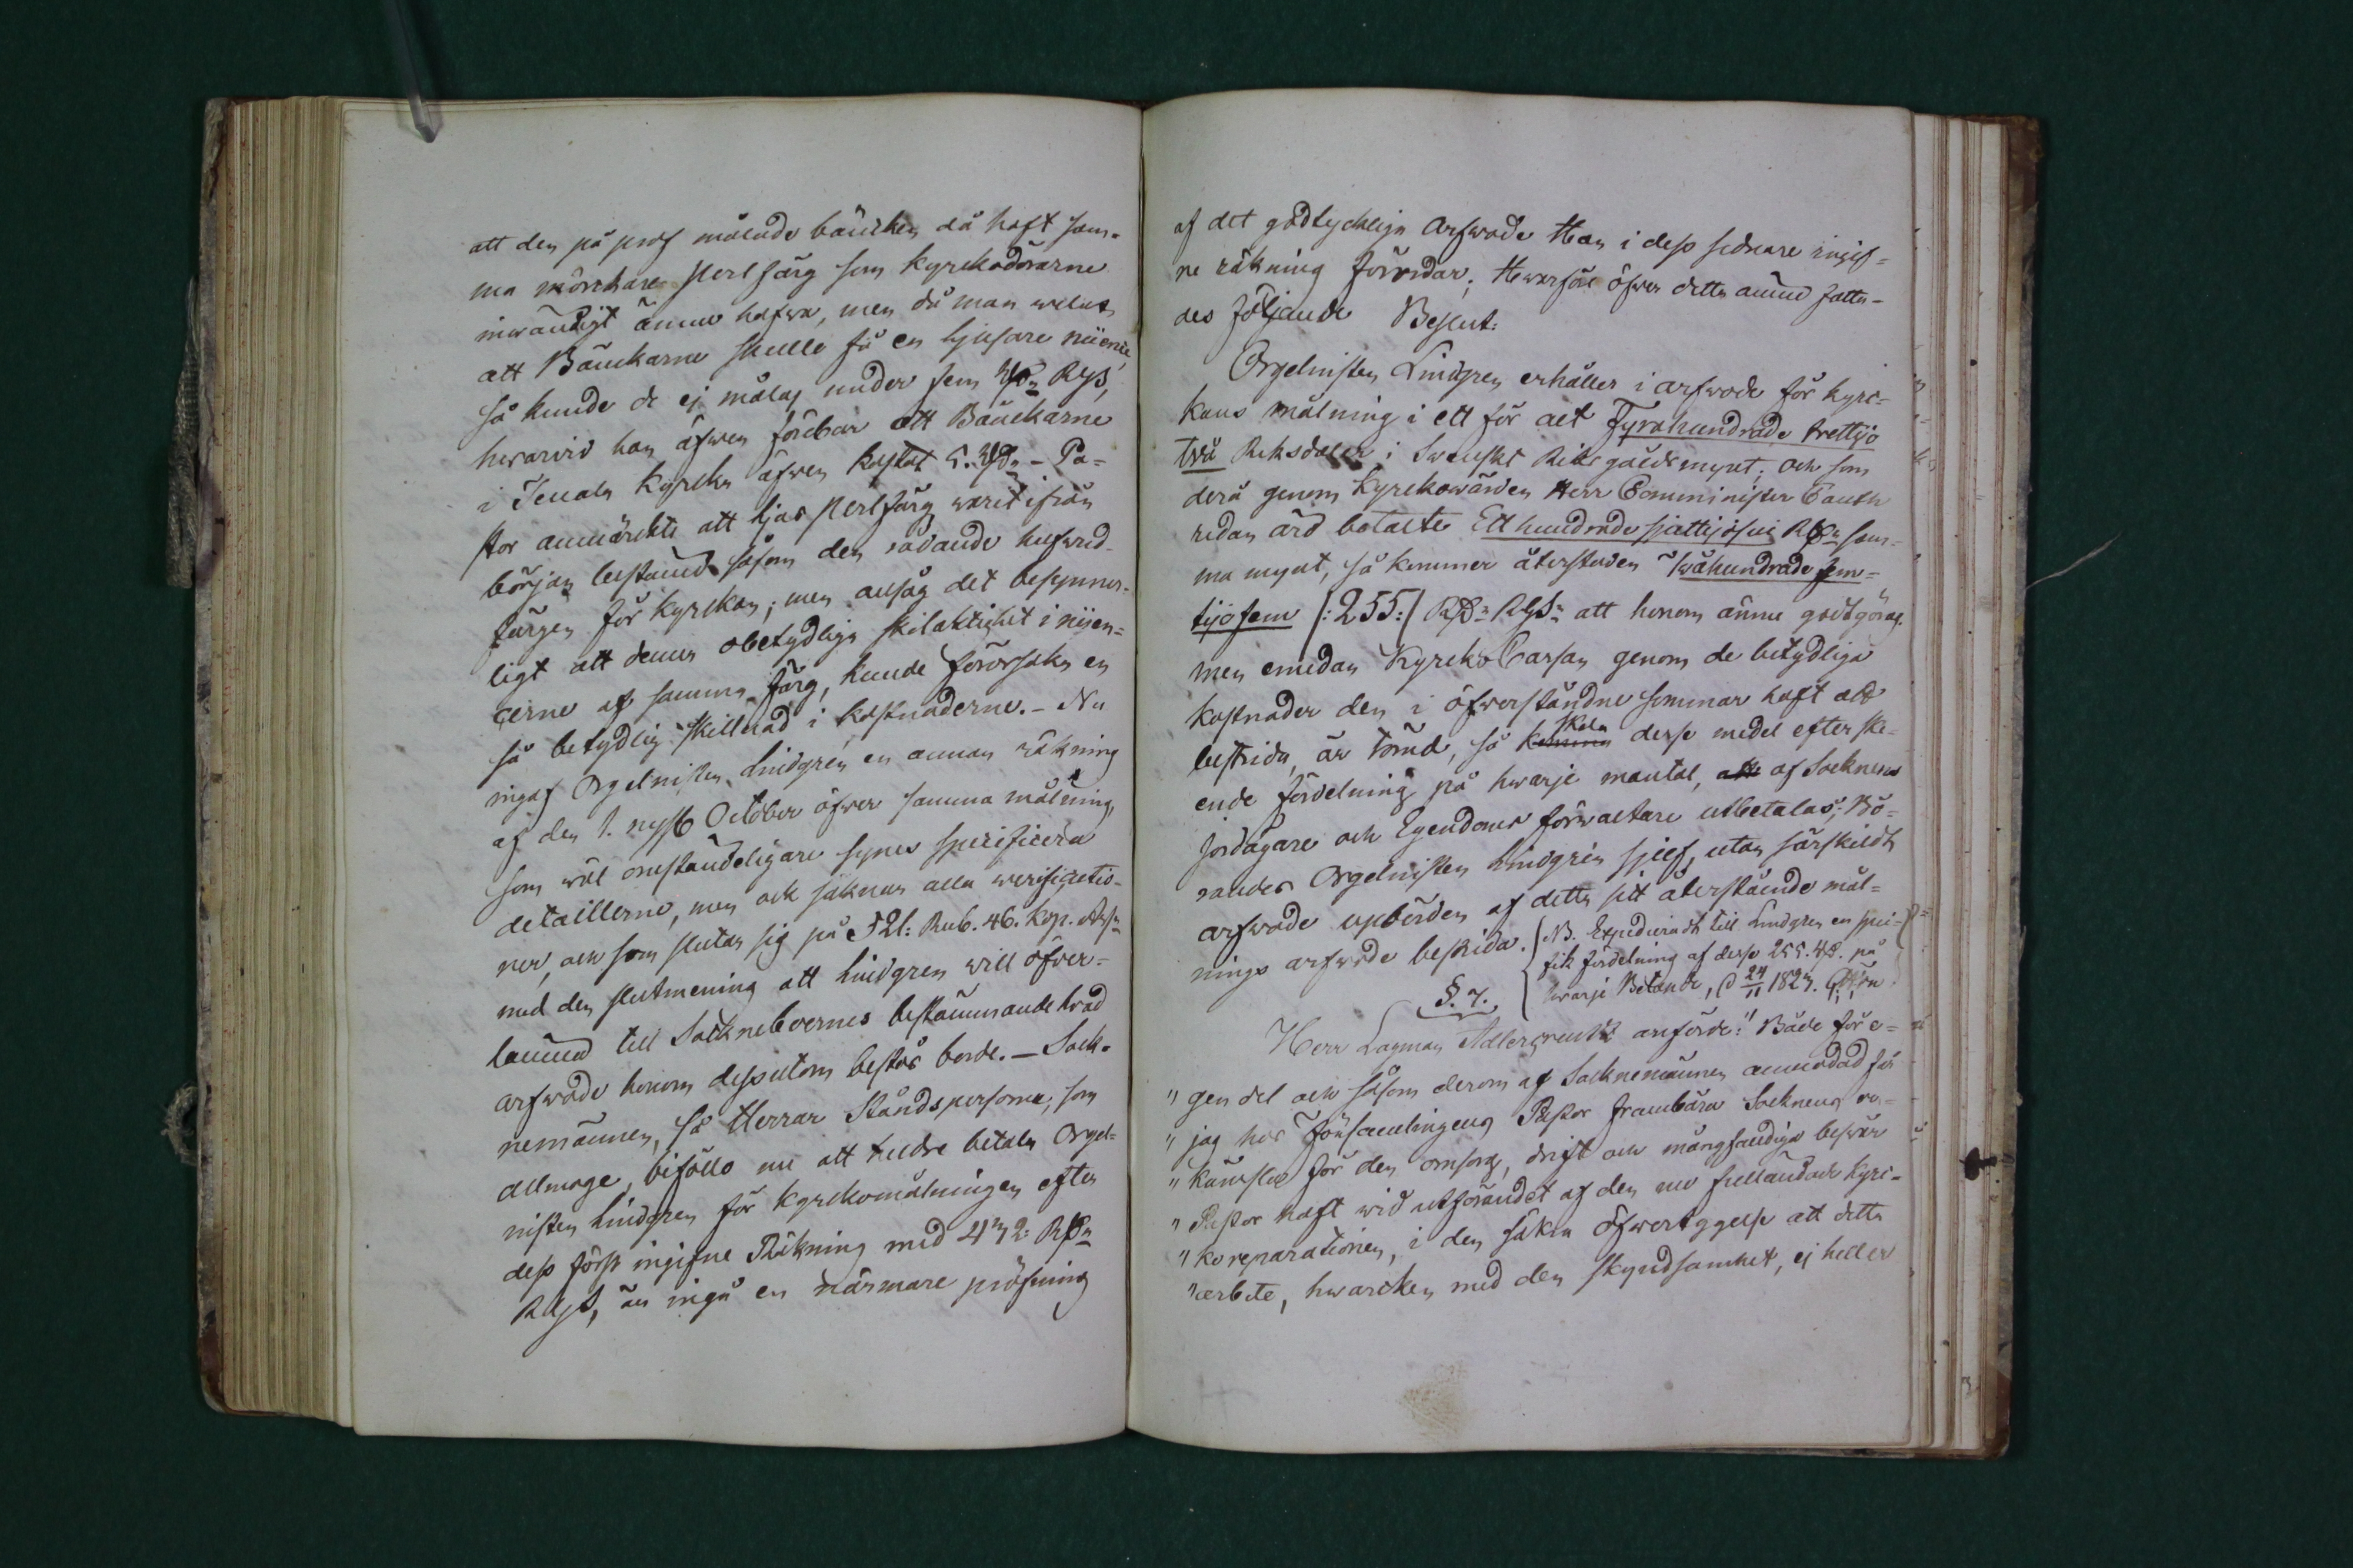 att den på prof målade bäncken då haft sam-
ma mörckare perlfärg som kyrckodörarne
inwändigt ännu hafwa, men då man welat
att Bänckarne skulle få en ljusare nüence,
så kunde de ej målas under fem Rd. RgS,
hwarvid han äfwen förebar att Bänckarne
i Tenala kyrcka äfwen kostat 5. Rd. – Pa-
stor anmärckte att ljus perlfärg warit ifrån
början bestämd såsom den rådande hufwud-
färgen för kyrckan; men ansåg det besynner-
ligt att denna obetydliga skilaktighet i nüen-
cerne af samma färg, kunde förorsaka en
så betydlig skillnad i kostnaderne. – Nu
ingaf Orgelnisten Lindgrén en annan räkning
af den 1. nyss October öfwer samma målning,
som wäl omständeligare synes specificera
detaillerne, men ock saknar alla werificatio-
ner, och som slutar sig på 521: Rub. 46. kop.
med den slutmening att Lindgren will öfver-
lämna till Sockneboernes bestämmande hvad
arfwode honom dessutom bestås borde. – Sock-
nemännen, så Herrar Ståndspersoner, som
allmoge, biföllo nu att heldre betala Orgel-
nisten Lindgren för kyrckomålningen efter
dess först ingifne Räkning med 432: Rd.
RgS, än ingå en närmare pröfning
af det godtycklige Arfwode Han i dess sednare ingif-
ne räkning fordrar; Hwarföre öfwer detta ämne fatta-
des följande Beslut:
Orgelnisten Lindgren erhåller i arfwode för kyrc-
kans målning i ett för allt Fyrahundrade trettijo
två Riksdaler i Swenskt Riksgäldsmynt; och som
derå genom kyrckowärden Herr Comminister Cauth
redan ärd betalte Etthundrade sjuttijosju Rd. sam-
ma mynt, så kommer återstoden Twåhundrade fem-
tijofem /:255:/ Rd. RgS. att honom ännu godtgöras.
men emedan Kyrcko Cassan genom de betydliga
kostnader den i öfwerståndne sommar haft att
bestrida, är tömd, så komma skola desse medel efter ske-
ende fördelning på hwarje mantal, att af Socknens
jordägare och Egendoms förwaltare utbetalas; Bö-
randes Orgelnisten Lindgrén sjelf, utan särskildt
arfwode upbörden af detta sitt återstående mål-
nings arfwode bestrida.
NB. Expedierades till Lindgren en speci-
fik fördelning af desse 255. Rd. på
hwarje Betande, d 24/11 1827.
§. 7.
Herr Lagman Adlercreutz anförde: "Både för e-
"gen del och såsom derom af Socknemännen anmodad får
"jag hos Församlingens Pastor frambära Socknens er-
"känsla för den omsorg, drift och mångfaldiga beswär
"Pastor haft wid utförandet af den nu fulländade kyrc-
"koreparationen, i den säkra öfwertygelse att detta
"arbete, hwarcken med den skyndsamhet, ej heller